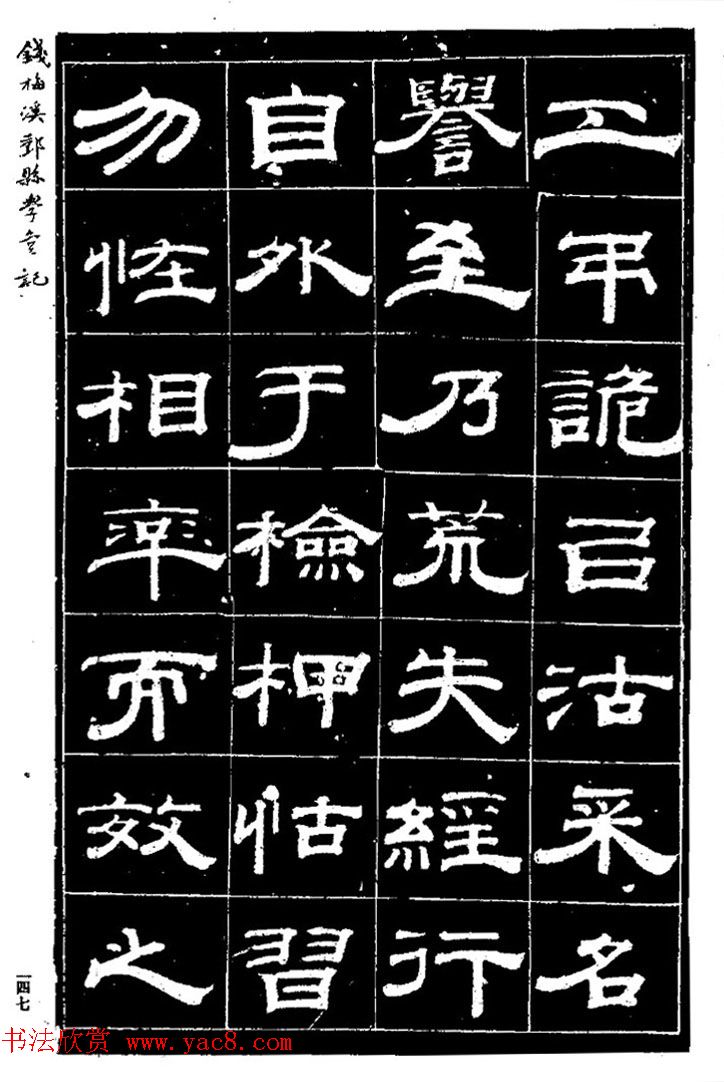 工弔詭㠯沽采名
譽至乃荒失經行
自外于檢柙怙習
勿恠相率而效之
錢梅溪鄞縣學宫記
一四七
书法欣赏 www.yac8.com